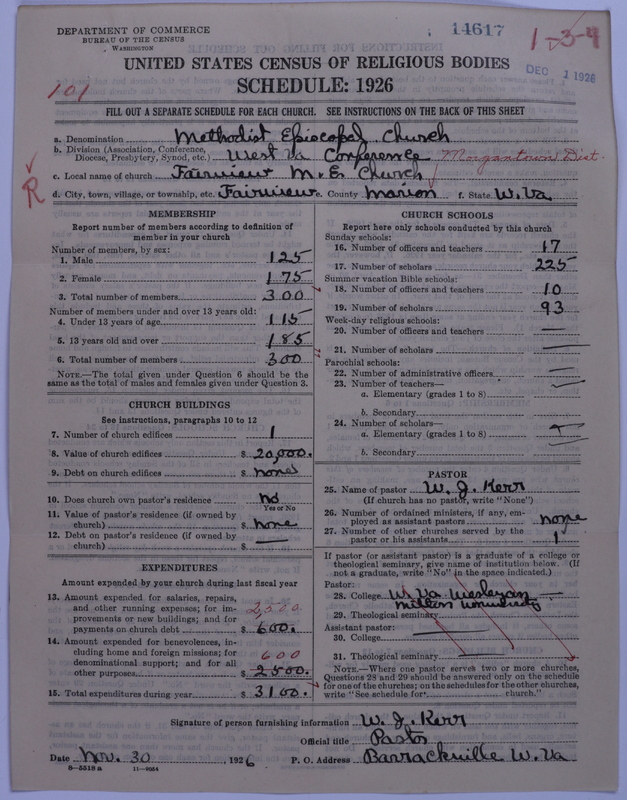 DEPARTMENT OF COMMERCE
BUREAU OF THE CENSUS
WASHINGTON
14617
1-3-4
DEC 1 1926
UNITED STATES CENSUS OF RELIGIOUS BODIES
SCHEDULE: 1926
101
FILL OUT A SEPARATE SCHEDULE FOR EACH CHURCH. SEE INSTRUCTIONS ON THE BACK OF THIS SHEET
a. Denomination Methodist Episcopal Church
b. Division (Association, Conference, Diocese, Presbytery, Synod, etc.) West Va Conference Morgantown Dist.
c. Local name of church Fairview M. E. Church
R
d. City, town, village, or township, etc. Fairview e. County Marion f. State W. Va
MEMBERSHIP
Report number of members according to definition of
member in your church
Number of members, by sex:
1. Male 125
2. Female 175
3. Total number of members 300
Number of members under and over 13 years old:
4. Under 13 years of age 115
5. 13 years old and over 185
6. Total number of members 300
NOTE.—The total given under Question 6 should be the
same as the total of males and females given under Question 3.
CHURCH BUILDINGS
See instructions, paragraphs 10 to 12
7. Number of church edifices 1
8. Value of church edifices $ 20,000.
9. Debt on church edifices $ none
10. Does church own pastor's residence No
Yes or No
11. Value of pastor's residence (if owned by
church) $ None
12. Debt on pastor's residence (if owned by
church) $ —
EXPENDITURES
Amount expended by your church during last fiscal year
13. Amount expended for salaries, repairs,
and other running expenses; for im-
provements or new buildings; and for
payments on church debt $ 600.
2,500
14. Amount expended for benevolences, in-
cluding home and foreign missions; for
denominational support; and for all
other purposes $ 2500.
600
15. Total expenditures during year $ 3100.
CHURCH SCHOOLS
Report here only schools conducted by this church
Sunday schools:
16. Number of officers and teachers 17
17. Number of scholars 225
Summer vacation Bible schools:
18. Number of officers and teachers 10
19. Number of scholars 93
Week-day religious schools:
20. Number of officers and teachers —
21. Number of scholars —
Parochial schools:
22. Number of administrative officers —
23. Number of teachers—
a. Elementary (grades 1 to 8)
b. Secondary
24. Number of scholars—
a. Elementary (grades 1 to 8)
b. Secondary
PASTOR
25. Name of pastor W. J. Kerr
(If church has no pastor, write "None")
26. Number of ordained ministers, if any, em-
ployed as assistant pastors none
27. Number of other churches served by the
pastor or his assistants 1
If pastor (or assistant pastor) is a graduate of a college or
theological seminary, give name of institution below. (If
not a graduate, write "No" in the space indicated.)
Pastor:
28. College W. Va Wesleyan —
Milton University
29. Theological seminary
Assistant pastor:
30. College
31. Theological seminary
NOTE.—Where one pastor serves two or more churches,
Questions 28 and 29 should be answered only on the schedule
for one of the churches; on the schedules for the other churches,
write "See schedule for church."
Signature of person furnishing information W. J. Kerr
Official title Pastor
Date Nov. 30, 1926 P. O. Address Barrackville W. Va
8—5518 a 11—9024